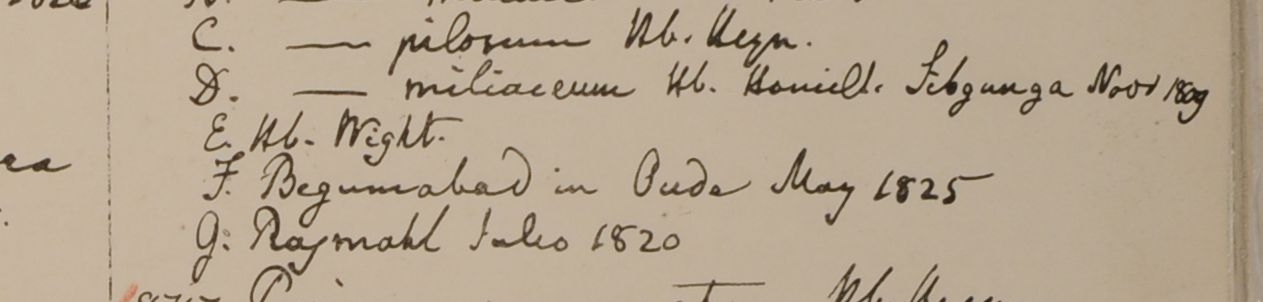 C. — pilosum Hb. Heyn.
D. — miliaceum Hb. Hamilt. Sibgunga Novr 1809
E. Hb. Wight.
F. Begumabad in Oude May 1825
G. Rajmahl Julio 1820
Hb. Heyn